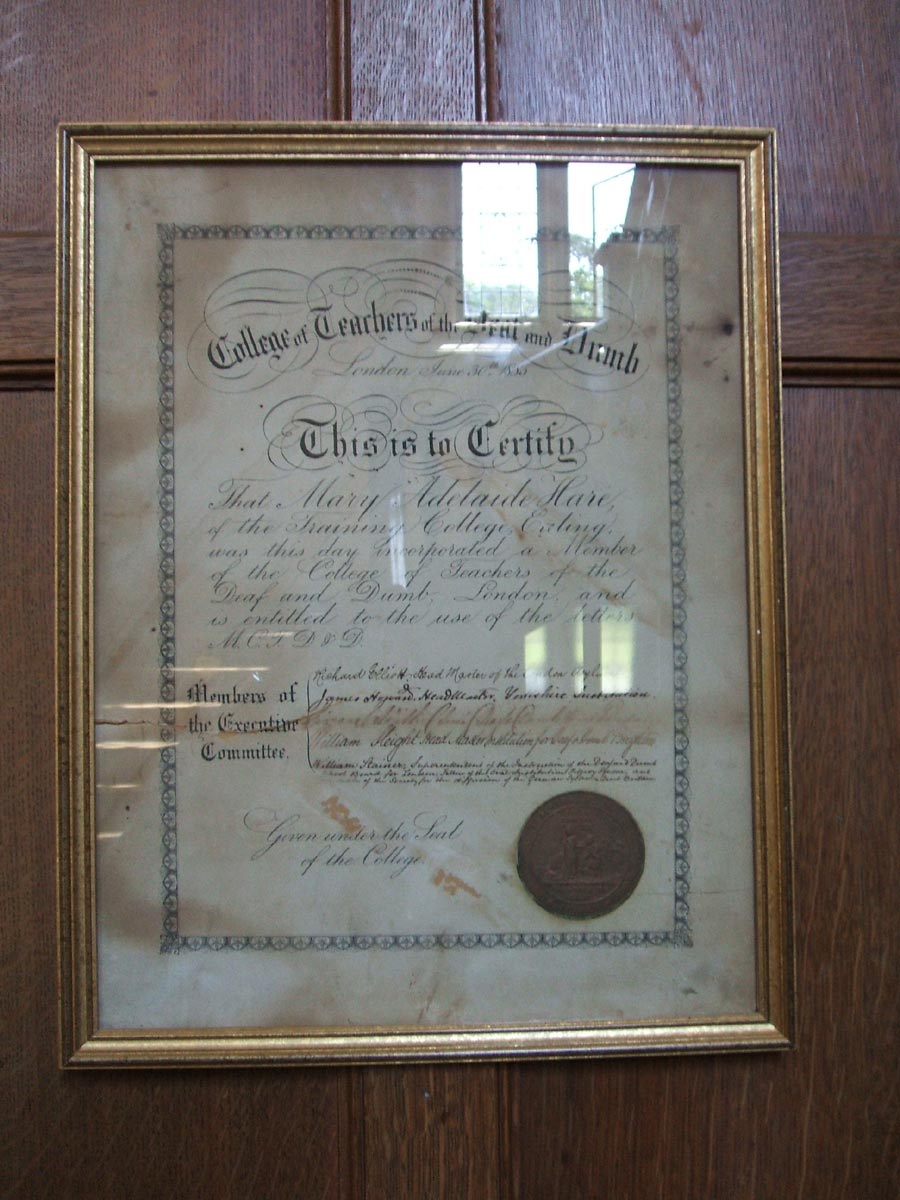 College of Teachers of the Deaf and Dumb
London June 30th 1885
This is to Certify
That Mary Adelaide Hare,
of the Training College, Ealing,
was this day incorporated a Member
of the College of Teachers of the
Deaf and Dumb, London, and
is entitled to the use of the letters
M.C.T.D & D.
Members of
the Executive
Committee.
Richard Elliott Head Master of the London Asylum
James Howard. Head Master, Yorkshire Institution.
William Sleight Head Master Institution for Deaf & Dumb Brighton
William Stainer, Superintendent of the Instruction of the Deaf and Dumb
School Board for London,
Given under the Seal
of the College.